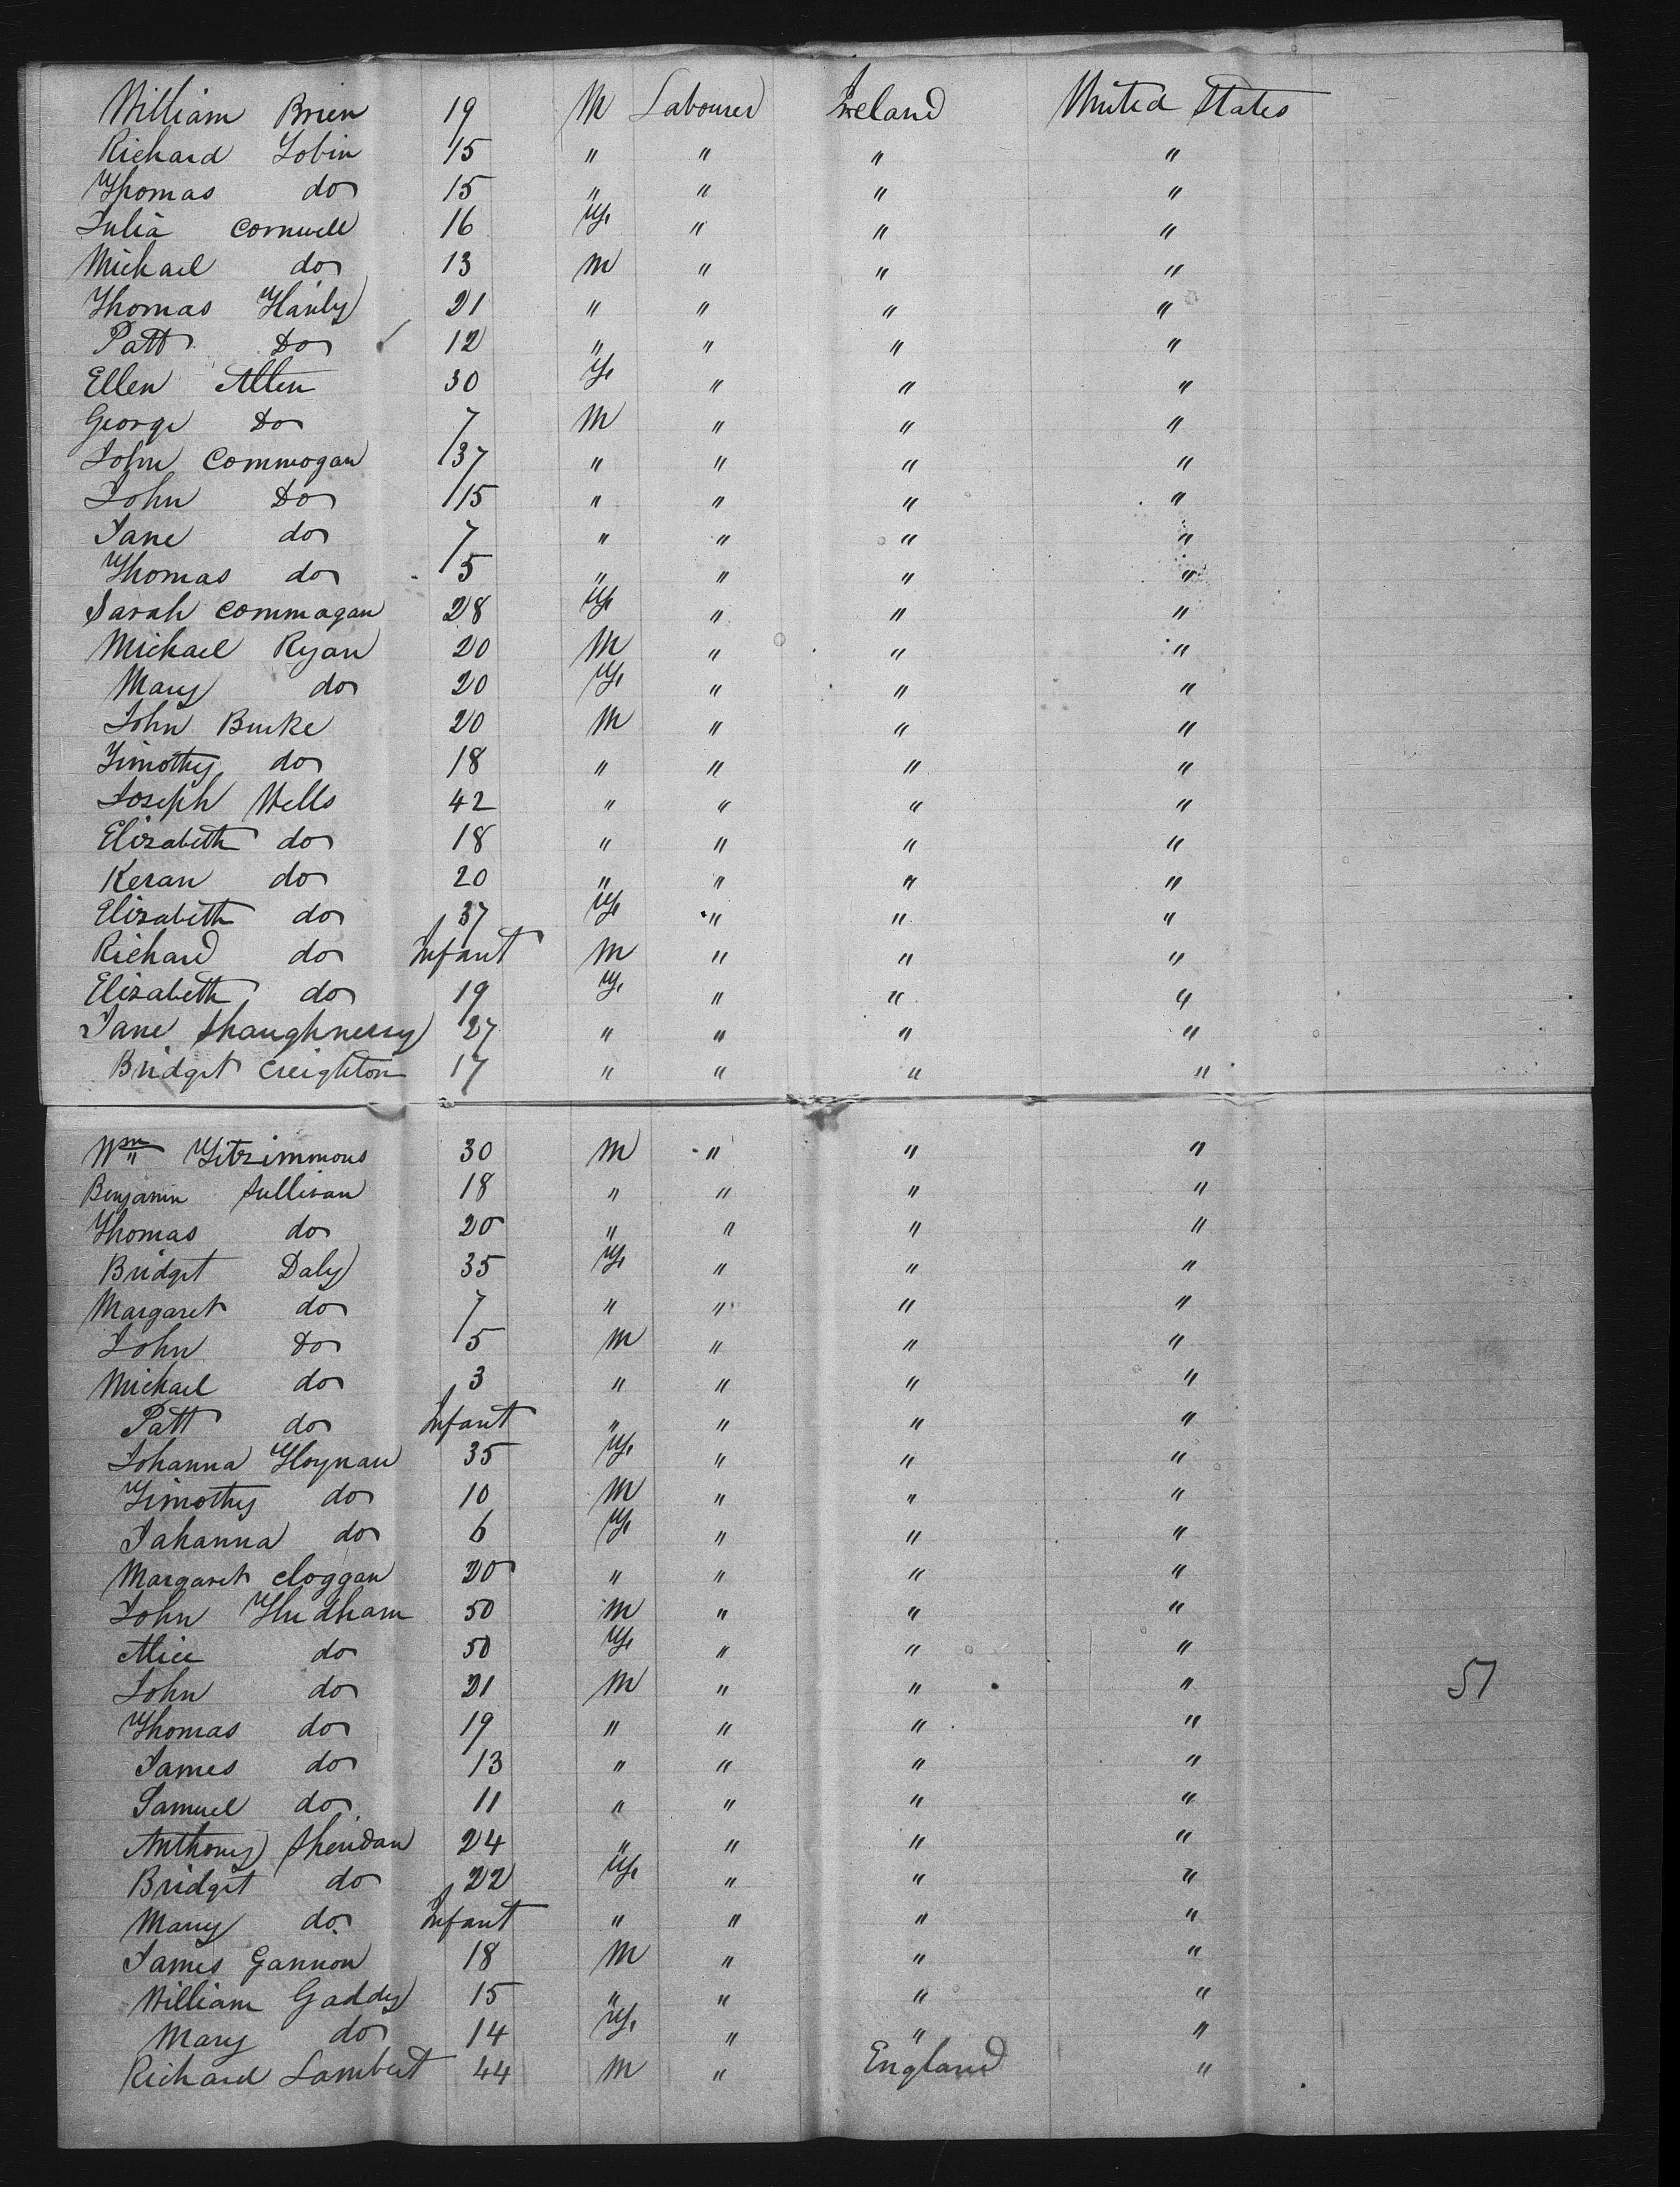 William Brien 19 M Labourer Ireland United States
Richard Tobin 15 " " " "
Thomas do 15 " " " "
Julia Cornwell 16 F. " " "
Michael do 13 M " " "
Thomas Hanly 21 " " " "
Patt Do 12 " " " "
Ellen Allen 30 F. " " "
George Do 7 M " " "
John Commogan 37 " " " "
John Do 15 " " " "
Jane do 7 " " " "
Thomas do 5 " " " "
Sarah Commagan 28 F. " " "
Michael Ryan 20 M " " "
Mary do 20 F. " " "
John Burke 20 M " " "
Timothy do 18 " " " "
Joseph Wells 42 " " " "
Elizabeth do 18 " " " "
Keran do 20 " " " "
Elizabeth do 37 F. " " "
Richard do Infant M " " "
Elizabeth do 19 F. " " "
Jane Shaughnessy 27 " " " "
Bridget Creighton 17 " " " "
Wm Fitzsimmons 30 M " " "
Benjamin Sullivan 18 " " " "
Thomas do 20 " " " "
Bridget Daly 35 F. " " "
Margaret do 7 " " " "
John Do 5 M " " "
Michael do 3 " " " "
Patt do Infant " " " "
Johanna Hoynan 35 F. " " "
Timothy do 10 M " " "
Jahanna do 6 F. " " "
Margaret Cloggan 20 " " " "
John Hudham 50 M " " "
Alice do 50 F. " " "
John do 21 M " " "
Thomas do 19 " " " "
James do 13 " " " "
Samuel do 11 " " " "
Anthony Sheridan 24 " " " "
Bridget do 22 F. " " "
Mary do Infant " " " "
James Gannon 18 M " " "
William Gaddy 15 " " " "
Mary do 14 F. " " "
Richard Lambert 44 M " England "
51